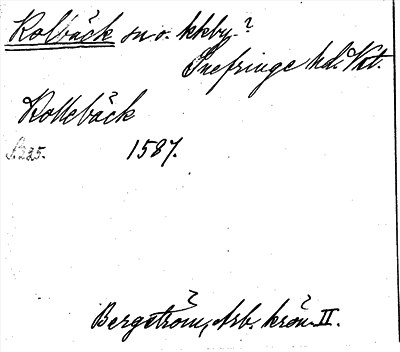 Kolbäck sn o. kkby.?
Snefringe hd. Vst.
Kollebäck
S. 225. 1587.
Bergström, Arb. krön. II.